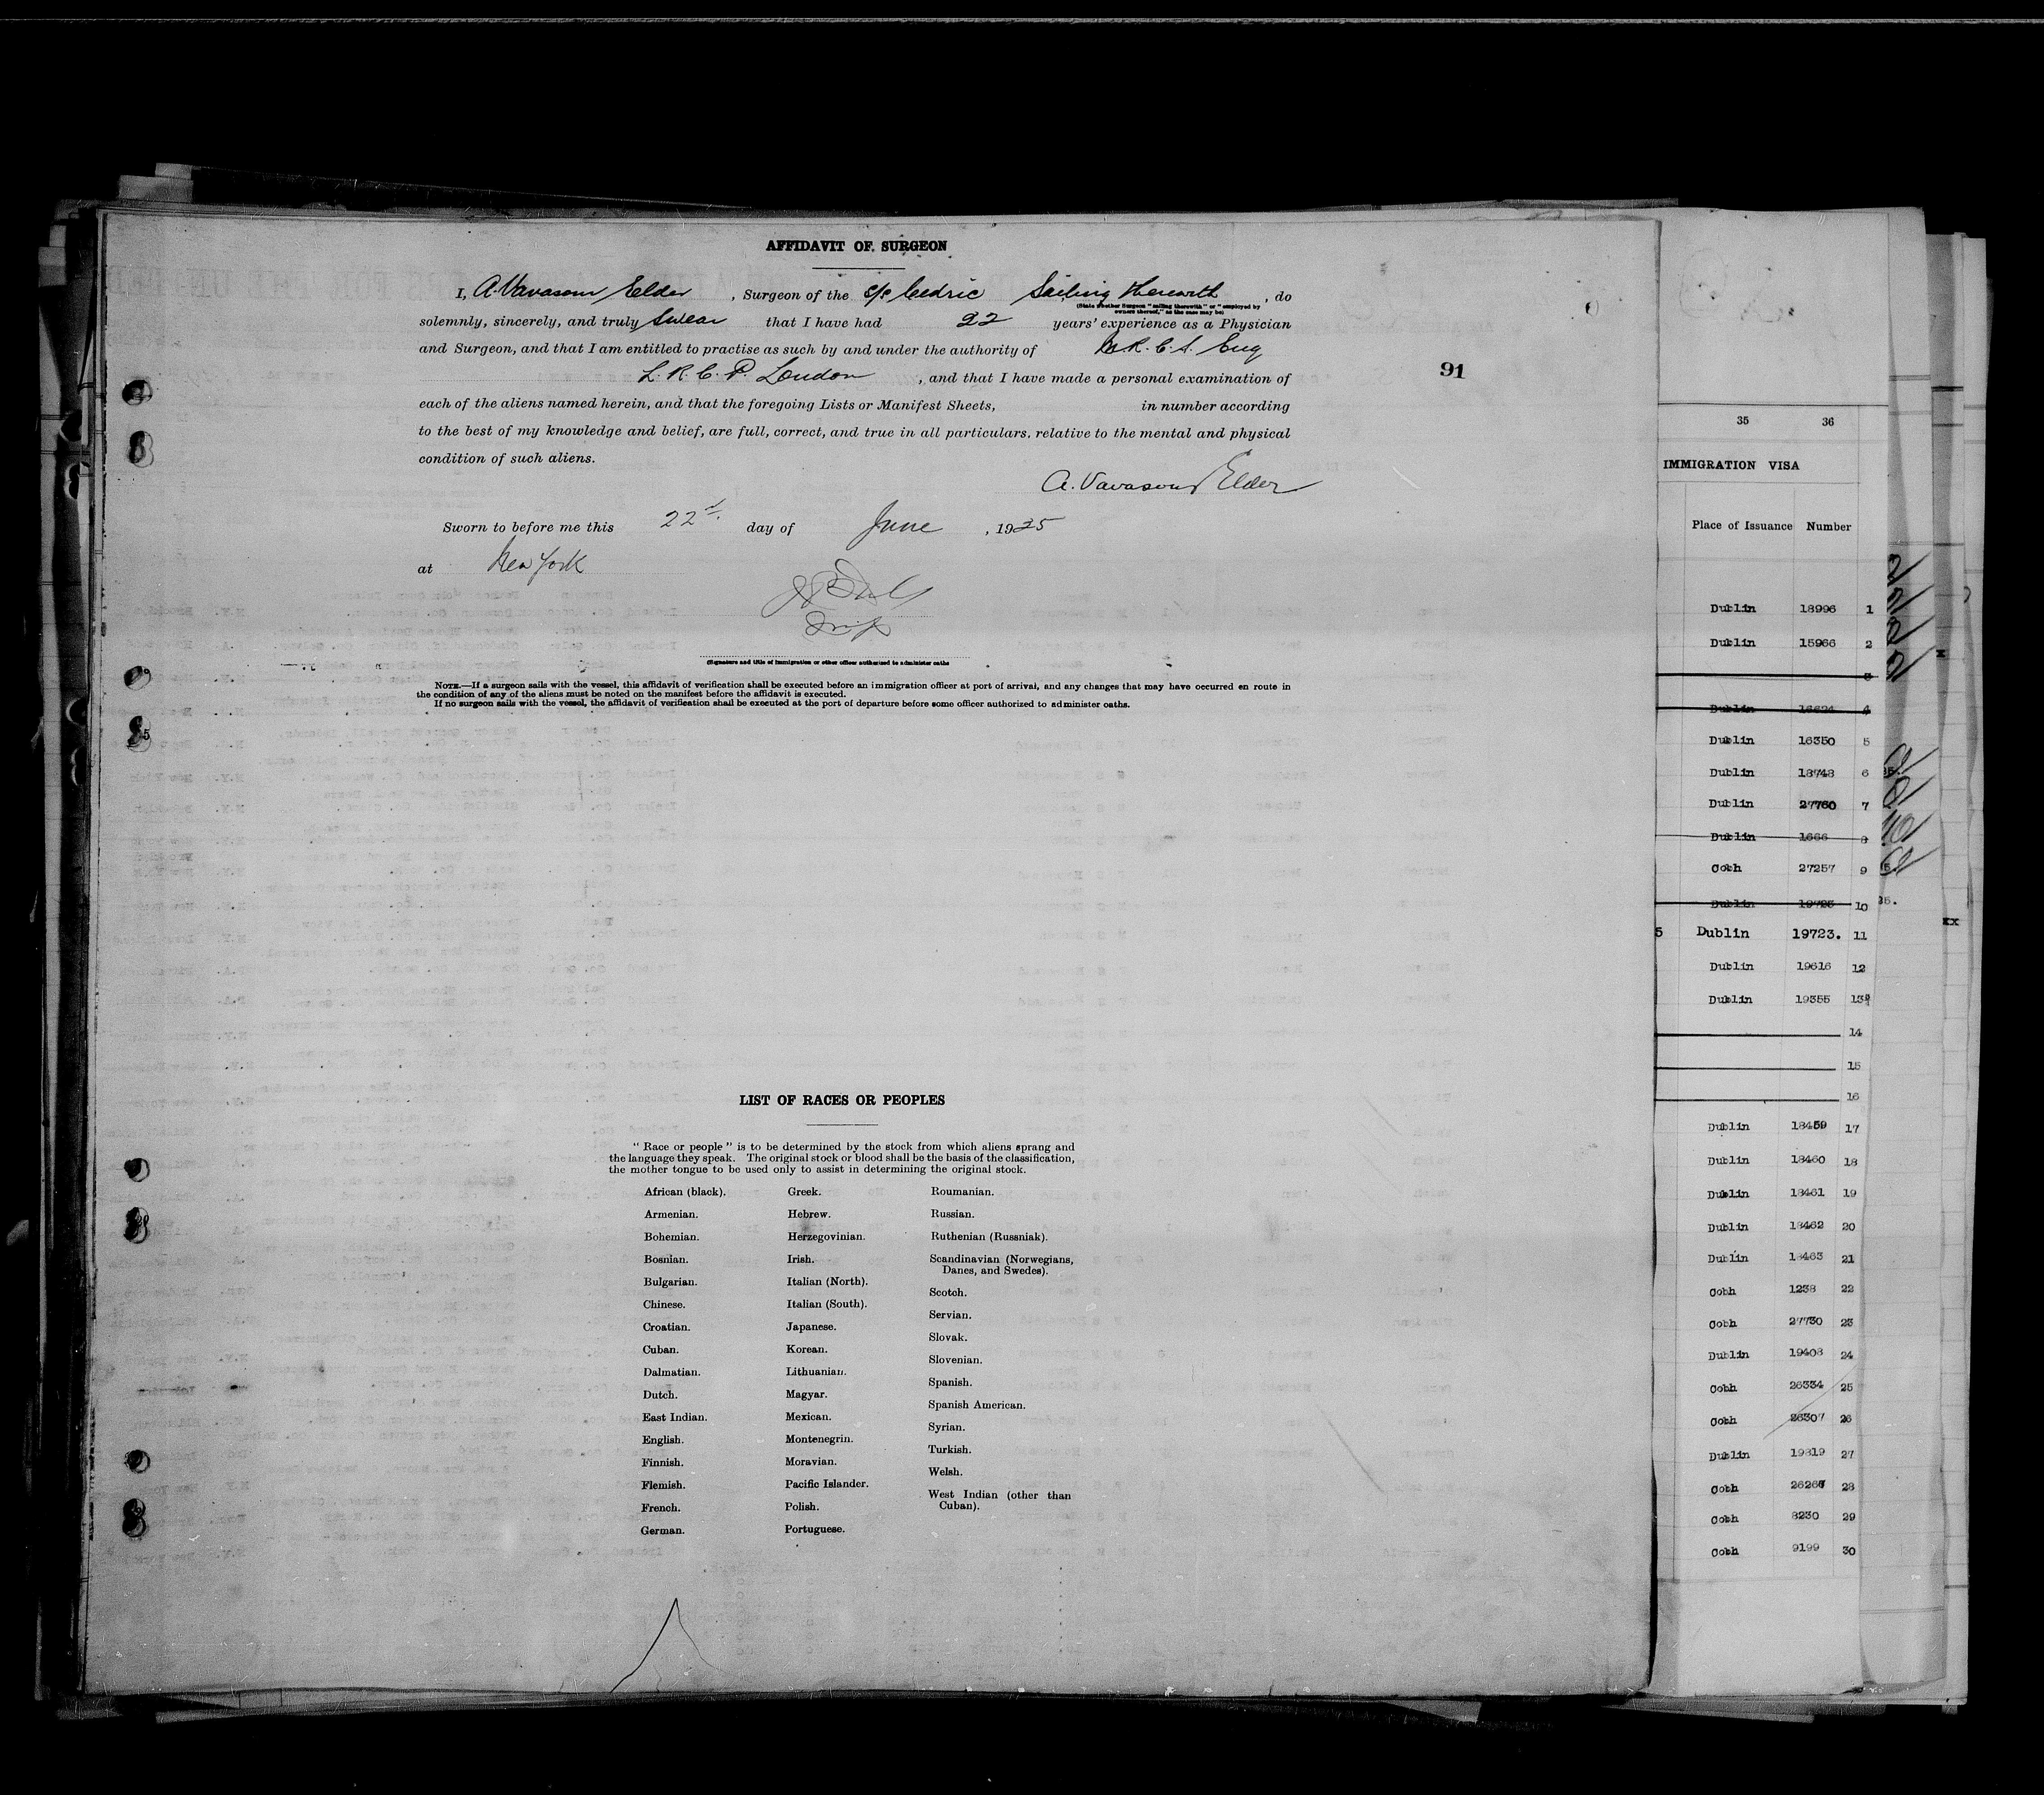 AFFIDAVIT OF SURGEON
I, A. Vavasour Elder , Surgeon of the s/s Cedric Sailing therewith , do
(State whether Surgeon "sailing therewith" or "employed by
owners thereof," as the case may be)
solemnly, sincerely, and truly swear that I have had 22 years' experience as a Physician
and Surgeon, and that I am entitled to practise as such by and under the authority of M.R.C.S. Eng
L.R.C.P. London , and that I have made a personal examination of
each of the aliens named herein, and that the foregoing Lists or Manifest Sheets, in number according
to the best of my knowledge and belief, are full, correct, and true in all particulars, relative to the mental and physical
condition of such aliens.
A. Vavasour Elder
Sworn to before me this 22d. day of June , 1925
at New York
(Signature and title of immigration or other officer authorized to administer oaths
NOTE.—If a surgeon sails with the vessel, this affidavit of verification shall be executed before an immigration officer at port of arrival, and any changes that may have occurred en route in
the condition of any of the aliens must be noted on the manifest before the affidavit is executed.
If no surgeon sails with the vessel, the affidavit of verification shall be executed at the port of departure before some officer authorized to administer oaths.
91
LIST OF RACES OR PEOPLES
" Race or people " is to be determined by the stock from which aliens sprang and
the language they speak. The original stock or blood shall be the basis of the classification,
the mother tongue to be used only to assist in determining the original stock.
African (black).
Armenian.
Bohemian.
Bosnian.
Bulgarian.
Chinese.
Croatian.
Cuban.
Dalmatian.
Dutch.
East Indian.
English.
Finnish.
Flemish.
French.
German.
Greek.
Hebrew.
Herzegovinian.
Irish.
Italian (North).
Italian (South).
Japanese.
Korean.
Lithuanian.
Magyar.
Mexican.
Montenegrin.
Moravian.
Pacific Islander.
Polish.
Portuguese.
Roumanian.
Russian.
Ruthenian (Russniak).
Scandinavian (Norwegians,
Danes, and Swedes).
Scotch.
Servian.
Slovak.
Slovenian.
Spanish.
Spanish American.
Syrian.
Turkish.
Welsh.
West Indian (other than
Cuban).
35 36
IMMIGRATION VISA
Place of Issuance Number
Dublin 18996 1
Dublin 15966 2
3
Dublin 16624 4
Dublin 16350 5
Dublin 18748 6
Dublin 27760 7
Dublin 1666 8
Cobh 27257 9
Dublin 19723 10
5 Dublin 19723. 11
Dublin 19616 12
Dublin 19355 13
14
15
16
Dublin 18459 17
Dublin 18460 18
Dublin 18461 19
Dublin 18462 20
Dublin 18463 21
Cobh 1238 22
Cobh 27730 23
Dublin 19408 24
Cobh 26334 25
Cobh 26307 26
Dublin 19819 27
Cobh 26267 28
Cobh 8230 29
Cobh 9199 30